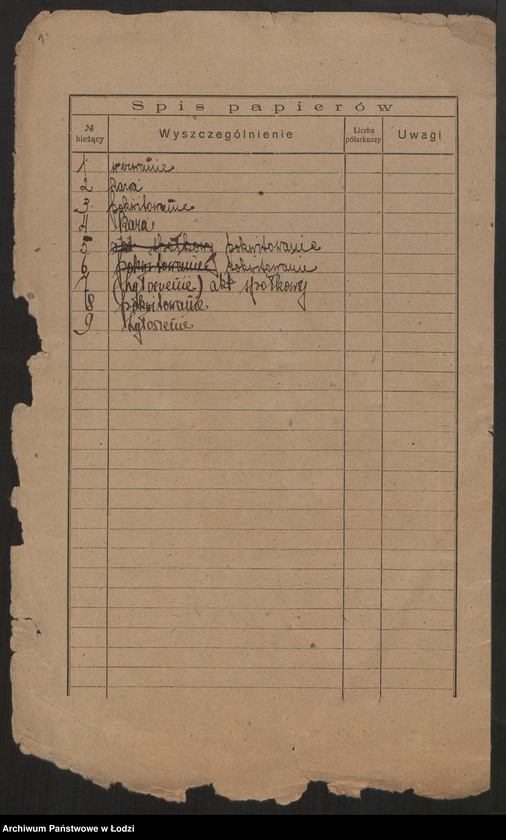 1.
Spis papierów
№ bieżący Wyszczególnienie Liczba półarkuszy Uwagi
1 wezwanie
2 kara
3 pokwitowanie
4 kara
5 akt spółkowy pokwitowanie
6 pokwitowanie pokwitowanie
7 (zgłoszenie) akt spółkowy
8 pokwitowanie
9 zgłoszenie
Archiwum Państwowe w Łodzi